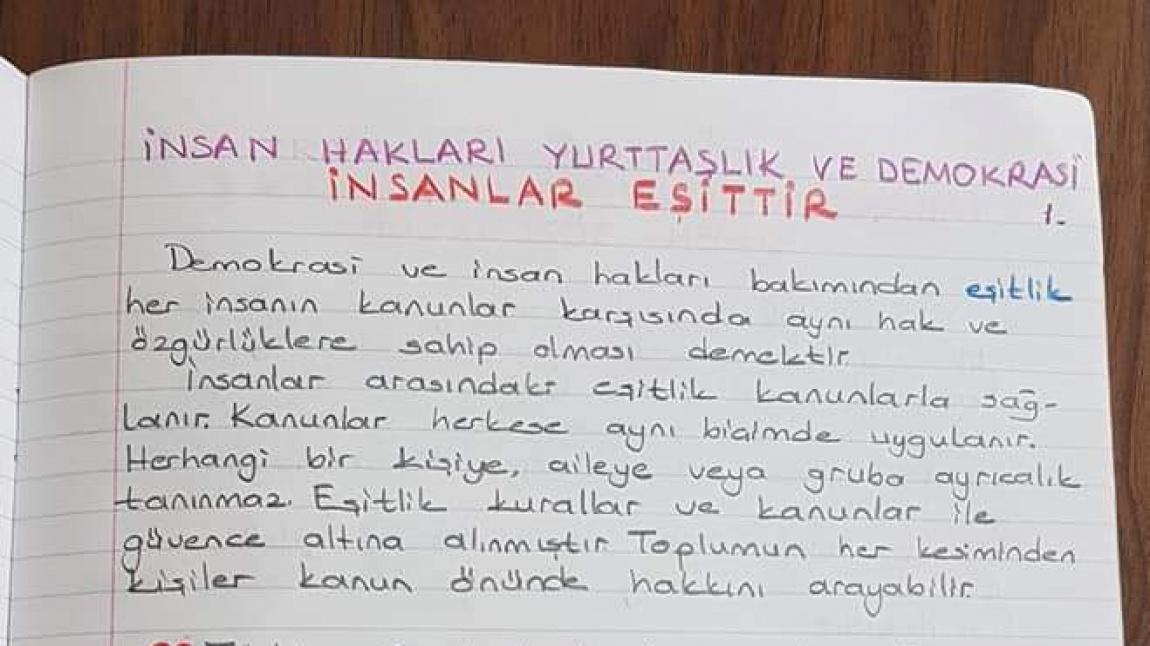 İNSAN HAKLARI YURTTAŞLIK VE DEMOKRASİ
İNSANLAR EŞİTTİR
1-
Demokrasi ve insan hakları bakımından eşitlik
her insanın kanunlar karşısında aynı hak ve
özgürlüklere sahip olması demektir.
İnsanlar arasındaki eşitlik kanunlarla sağ-
lanır. Kanunlar herkese aynı biçimde uygulanır.
Herhangi bir kişiye, aileye veya gruba ayrıcalık
tanınmaz. Eşitlik kurallar ve kanunlar ile
güvence altına alınmıştır. Toplumun her kesiminden
kişiler kanun önünde hakkını arayabilir.